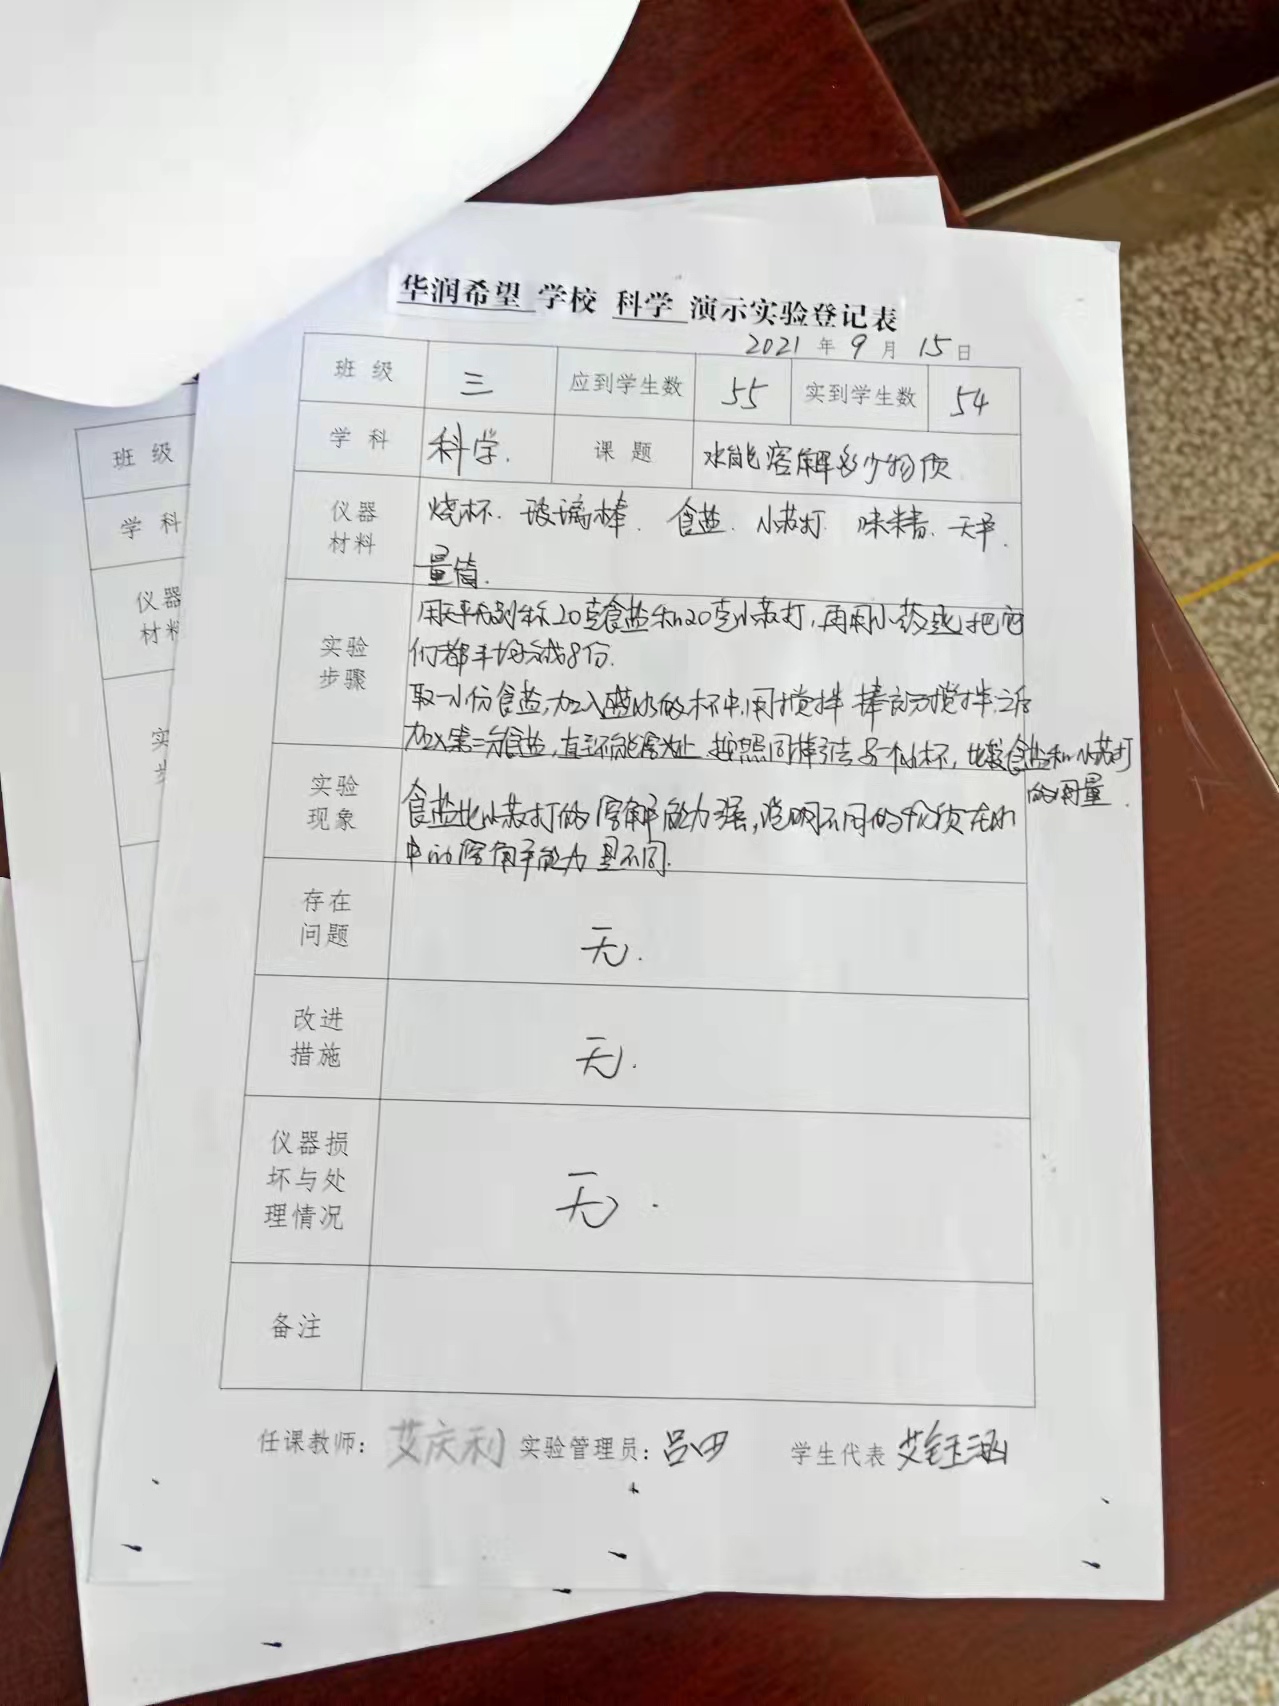 华润希望 学校 科学 演示实验登记表
2021 年 9 月 15 日
班级 三 应到学生数 55 实到学生数 54
学科 科学. 课题 水能溶解多少物质
仪器材料 烧杯. 玻璃棒. 食盐. 小苏打. 味精. 天平.
量筒.
实验步骤 用天平分别称20克食盐和20克小苏打,再用小药匙把它
们都平均分成8份.
取一小份食盐,加入盛水的杯中,用搅拌棒充分搅拌,之后
加入第二份食盐,直到不能溶为止.按照同样方法 杯,比较食盐和小苏打
的用量.
实验现象 食盐比小苏打的溶解能力强,说明不同的物质在水
中的溶解能力是不同.
存在问题 无.
改进措施 无.
仪器损坏与处理情况 无.
备注
任课教师: 艾庆利 实验管理员: 吕田 学生代表 艾钰涵
班级
学科
仪器
材料
实